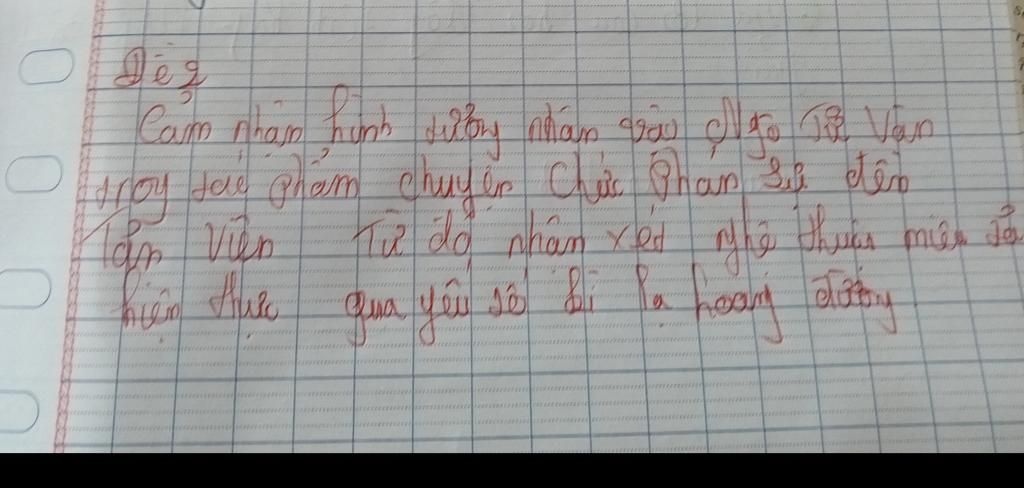 Đề 2
Cảm nhận hình tượng nhân vật Ngô Tử Văn
trong tác phẩm chuyện Chức Phán sự đền
Tản Viên Từ đó nhận xét nghệ thuật miêu tả
hiện thực qua yếu tố kì lạ hoang đường